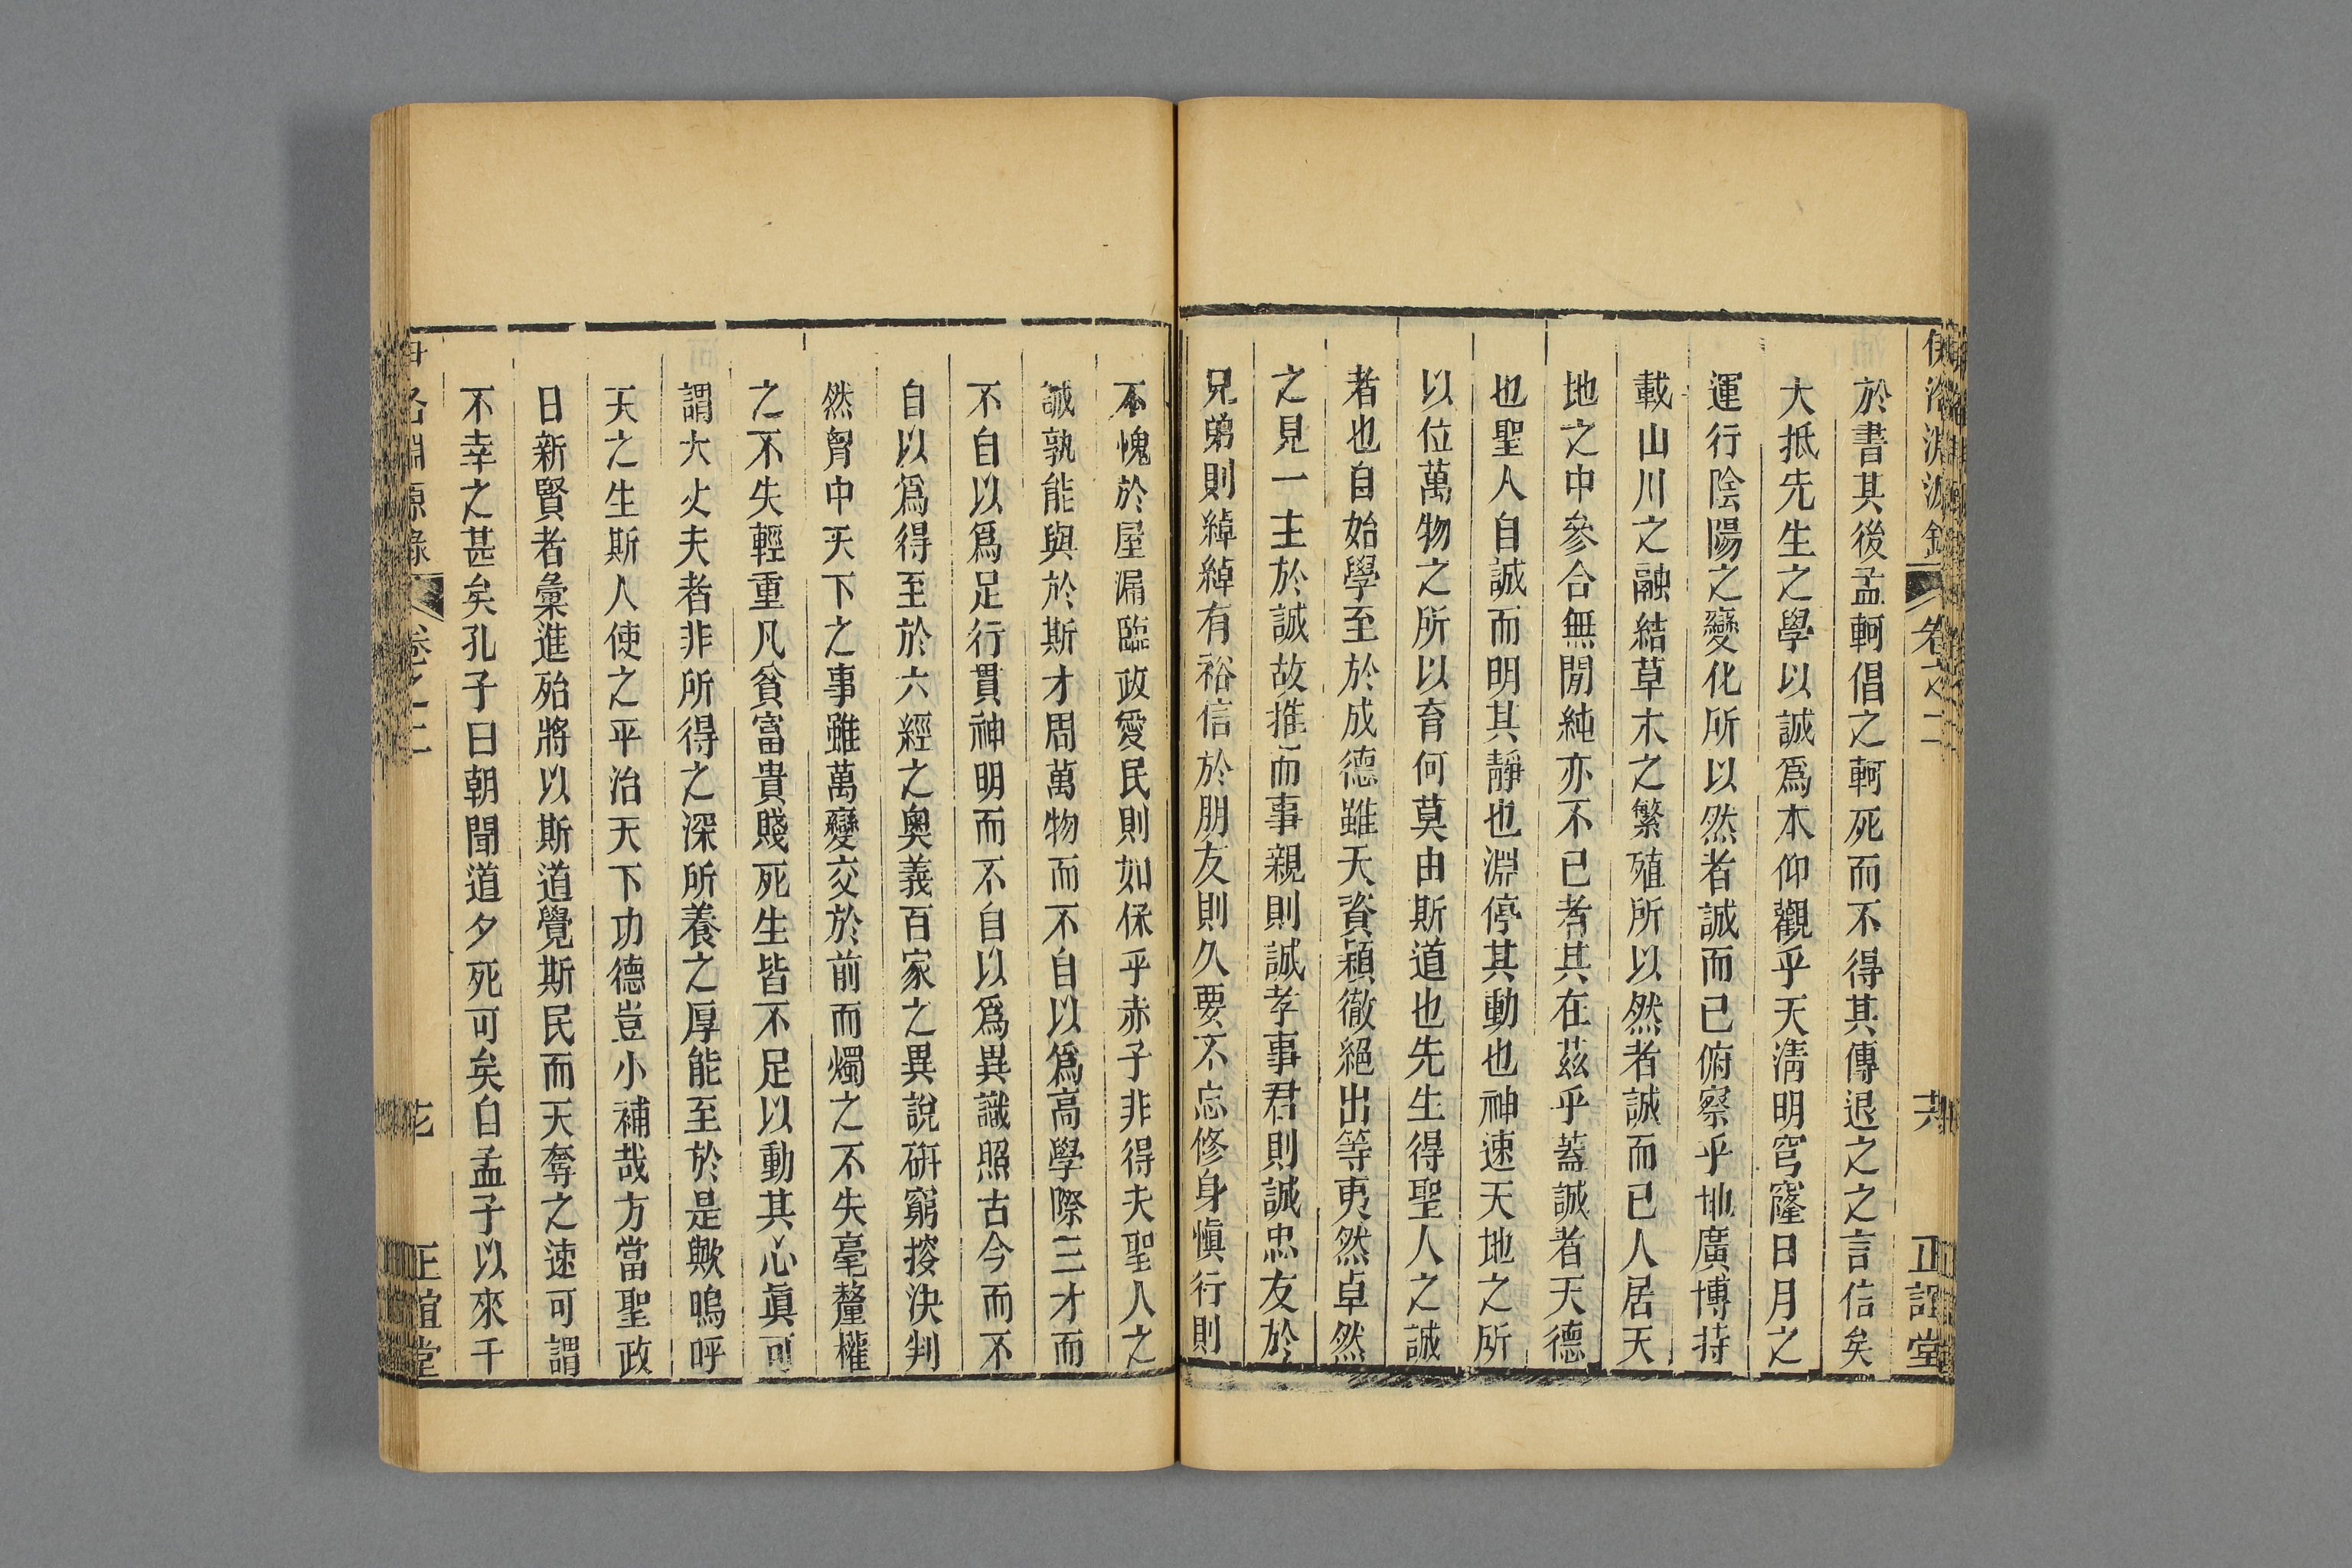 伊洛淵源錄 卷之二 六 正誼堂
於書其後孟軻倡之軻死而不得其傳退之之言信矣
大抵先生之學以誠爲本仰觀乎天淸明穹窿日月之
運行陰陽之變化所以然者誠而已俯察乎地廣博持
載山川之融結草木之繁殖所以然者誠而已人居天
地之中參合無閒純亦不已者其在茲乎蓋誠者天德
也聖人自誠而明其靜也淵停其動也神速天地之所
以位萬物之所以育何莫由斯道也先生得聖人之誠
者也自始學至於成德雖天資穎徹絕出等夷然卓然
之見一主於誠故推而事親則誠孝事君則誠忠友於
兄弟則綽綽有裕信於朋友則久要不忘修身愼行則
不愧於屋漏臨政愛民則如保乎赤子非得夫聖人之
誠孰能與於斯才周萬物而不自以爲高學際三才而
不自以爲足行貫神明而不自以爲異識照古今而不
自以爲得至於六經之奧義百家之異說硏窮搜決判
然胷中天下之事雖萬變交於前而燭之不失毫釐權
之不失輕重凡貧富貴賤死生皆不足以動其心眞可
謂大丈夫者非所得之深所養之厚能至於是歟嗚呼
天之生斯人使之平治天下功德豈小補哉方當聖政
日新賢者彙進殆將以斯道覺斯民而天奪之速可謂
不幸之甚矣孔子曰朝聞道夕死可矣自孟子以來千
洛淵源錄 卷之二 正誼堂